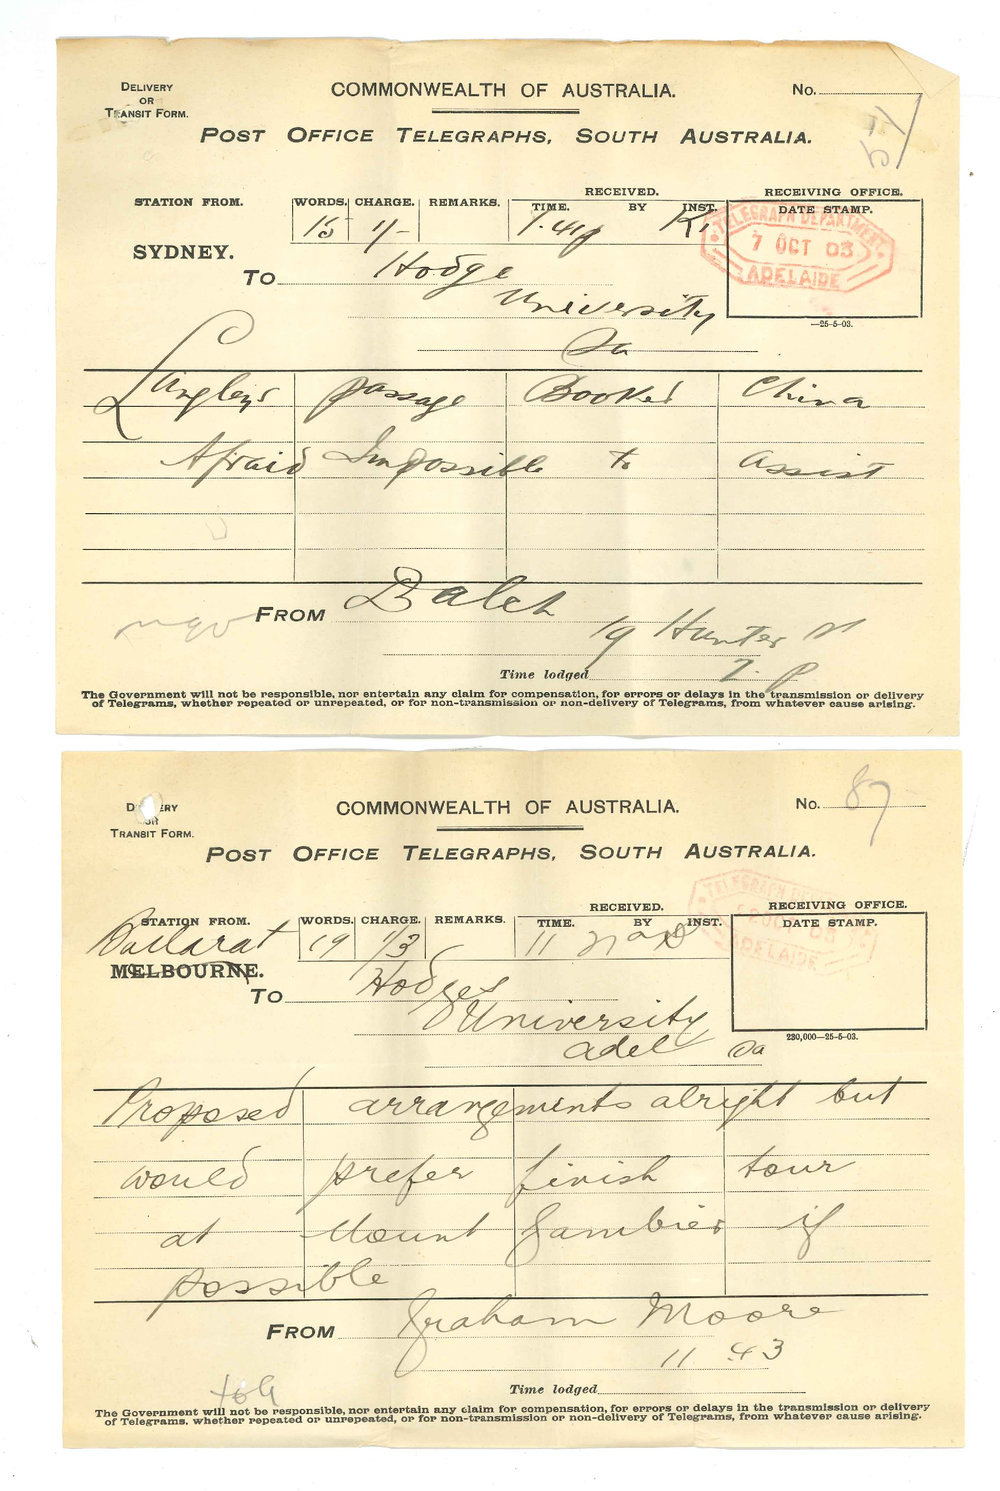 DELIVERY
OR
TRANSIT FORM.
COMMONWEALTH OF AUSTRALIA.
No.
POST OFFICE TELEGRAPHS, SOUTH AUSTRALIA.
STATION FROM.
WORDS. CHARGE. REMARKS.
RECEIVED.
TIME. BY INST.
RECEIVING OFFICE.
DATE STAMP.
15 1/-
TELEGRAPH DEPARTMENT
7 OCT 03
ADELAIDE
SYDNEY.
TO Hodge
University
Sa
—25-5-03.
Langleys passage Booked China
Afraid Impossible to Assist
FROM Balch
19 Hunter St
Time lodged 7. P
The Government will not be responsible, nor entertain any claim for compensation, for errors or delays in the transmission or delivery
of Telegrams, whether repeated or unrepeated, or for non-transmission or non-delivery of Telegrams, from whatever cause arising.
COMMONWEALTH OF AUSTRALIA.
No. 87
TRANSIT FORM.
POST OFFICE TELEGRAPHS, SOUTH AUSTRALIA.
STATION FROM.
WORDS. CHARGE. REMARKS.
RECEIVED.
TIME. BY INST.
RECEIVING OFFICE.
DATE STAMP.
Ballarat
19 1/3
ADELAIDE
MELBOURNE.
TO Hodges
University
Adel Sa
230,000—25-5-03.
Proposed arrangements alright but
would prefer finish tour
at Mount Gambier if
possible
FROM Graham Moore
11 43
Time lodged
The Government will not be responsible, nor entertain any claim for compensation, for errors or delays in the transmission or delivery
of Telegrams, whether repeated or unrepeated, or for non-transmission or non-delivery of Telegrams, from whatever cause arising.